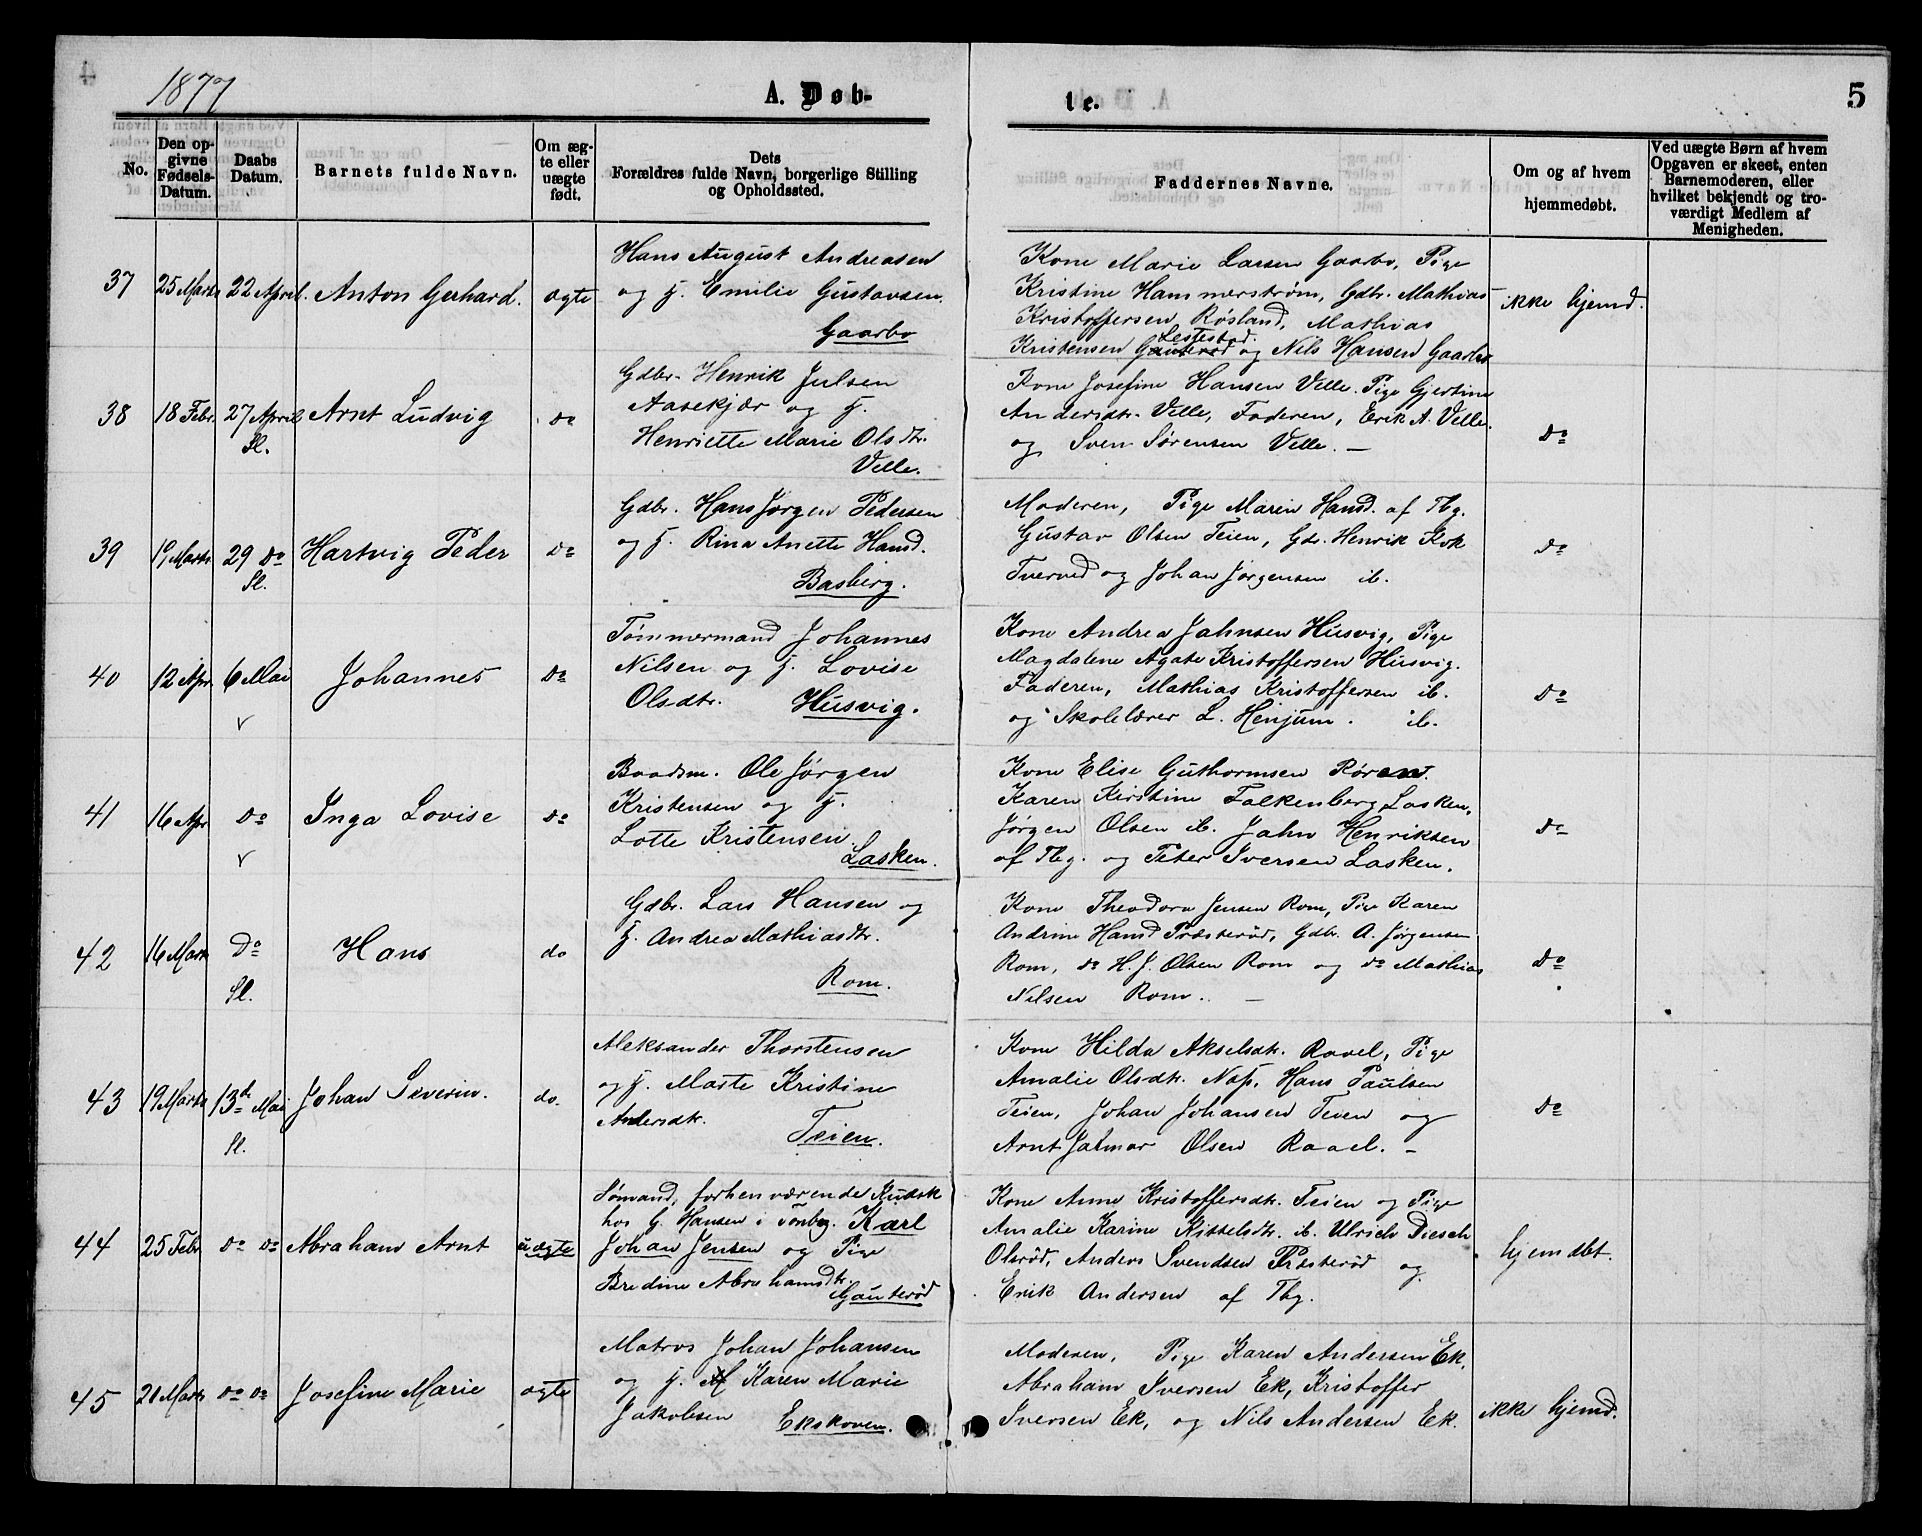 1877
A. Døb-
te.
5
No.
Den op-
givne
Fødsels-
Datum.
Daabs
Datum.
Barnets fulde Navn.
Om æg-
te eller
uægte
født.
Dets
Forældres fulde Navn, borgerlige Stilling
og Opholdssted.
Faddernes Navne.
Om og af hvem
hjemmedøbt.
Ved uægte Børn af hvem
Opgaven er skeet, enten
Barnemoderen, eller
hvilket bekjendt og tro-
værdigt Medlem af
Menigheden.
37
25 Marts
22 April.
Anton Gerhard.
ægte
Hans August Andreasen
og H. Emilie Gustavsen.
Gaarbo
Kone Marie Larsen Gaarbo, Pige
Kristine Hammerstrøm, Gdbr. Mathias
Kristoffersen Røsland, Mathias
Lestestad.
Kristensen Gauterød og Nils Hansen Gaarbo
ikke hjemd.
38
18 Febr.
27 April
Sl.
Arnt Ludvig
do
Gdbr. Henrik Julsen
Aasekjær og H.
Henriette Marie Olsdtr.
Velle.
Kone Josefine Hansen Velle. Pige Gjertine
Andersdtr. Velle, Faderen, Erik A. Velle.
og Sven Sørensen Velle. —
Do
39
19 Marts
29 Do
Sl.
Hartvig Peder
Do
Gdbr. Hans Jørgen Pedersen
og H. Rina Anette Hansd.
Basberg.
Moderen, Pige Maren Hansd. af Tbg.
Gustav Olsen Teien, Gdr. Henrik Kok
Tverved og Johan Jørgensen ib.
Do
40
12 Apr.
6 Mai
v
Johannes
Do
Tømmermand Johannes
Nilsen og H. Lovise
Olsdtr. Husvig.
Kone Andrea Jahnsen Husvig, Pige
Magdalene Agate Kristoffersen Husvig.
Faderen, Mathias Kristoffersen ib.
og Skolelærer L. Henjum. ib.
Do
41
16 Apr
Do
v
Inga Lovise
Do
Baadsm. Ole Jørgen
Kristensen og H.
Lotte Kristensen.
Lasken.
Kone Elise Guthormsen Røren.
Karen Kirstine Falkenberg Lasken,
Jørgen Olsen ib. Jahn Henriksen
af Tbg. og Peter Iversen Lasken.
Do
42
16 Marts
Do
Sl.
Hans
do
Gdbr. Lars Hansen og
H. Andrea Mathiasdtr.
Rom.
Kone Theodora Jensen Rom, Pige Karen
Andrine Hansd. Præsterød, Gdbr. A. Jørgensen
Rom, do H. J. Olsen Rom og do Mathias
Nilsen Rom. —
Do
43
19 Marts
13de Mai
Sl.
Johan Severin.
do.
Aleksander Thorstensen
og H. Marte Kristine
Andersdtr. Teien.
Kone Hilda Akselsdtr. Ravel, Pige
Amalie Olsdtr. Næs, Hans Paulsen
Teien, Johan Johansen Teien og
Arnt Jalmar Olsen Raael. —
Do
44
25 Febr.
Do Do
Abraham Arnt
uægte
Sømand, forhenværende Kudsk
hos G. Hansen i Tønbg. Karl
Johan Jensen og Pige
Bredine Abrahamsdtr.
Gauterød
Kone Anne Kristoffersdtr. Teien og Pige
Amalie Karine Kittelsdtr. ib. Ulrich Diesch
Olsrød, Anders Svendsen Præsterød og
Erik Andersen af Tbg.
hjemdbt.
45
21 Marts
Do Do
Josefine Marie
ægte
Matros Johan Johansen
og H. Karen Marie
Jakobsen Ekskoven.
Moderen, Pige Karen Andersen Ek.
Abraham Iversen Ek, Kristoffer
Iversen Ek, og Nils Andersen Ek.
ikke hjemd.